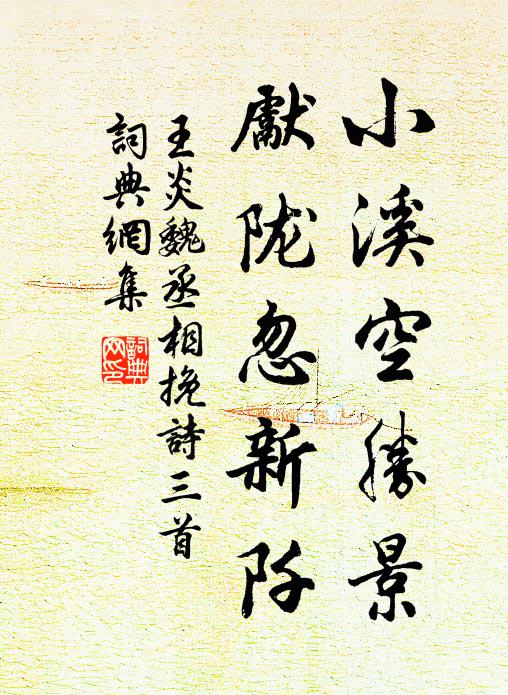 小溪空勝景
獻陇忽新阡
王炎魏丞相挽詩三首
詞典網集
詞典
网印